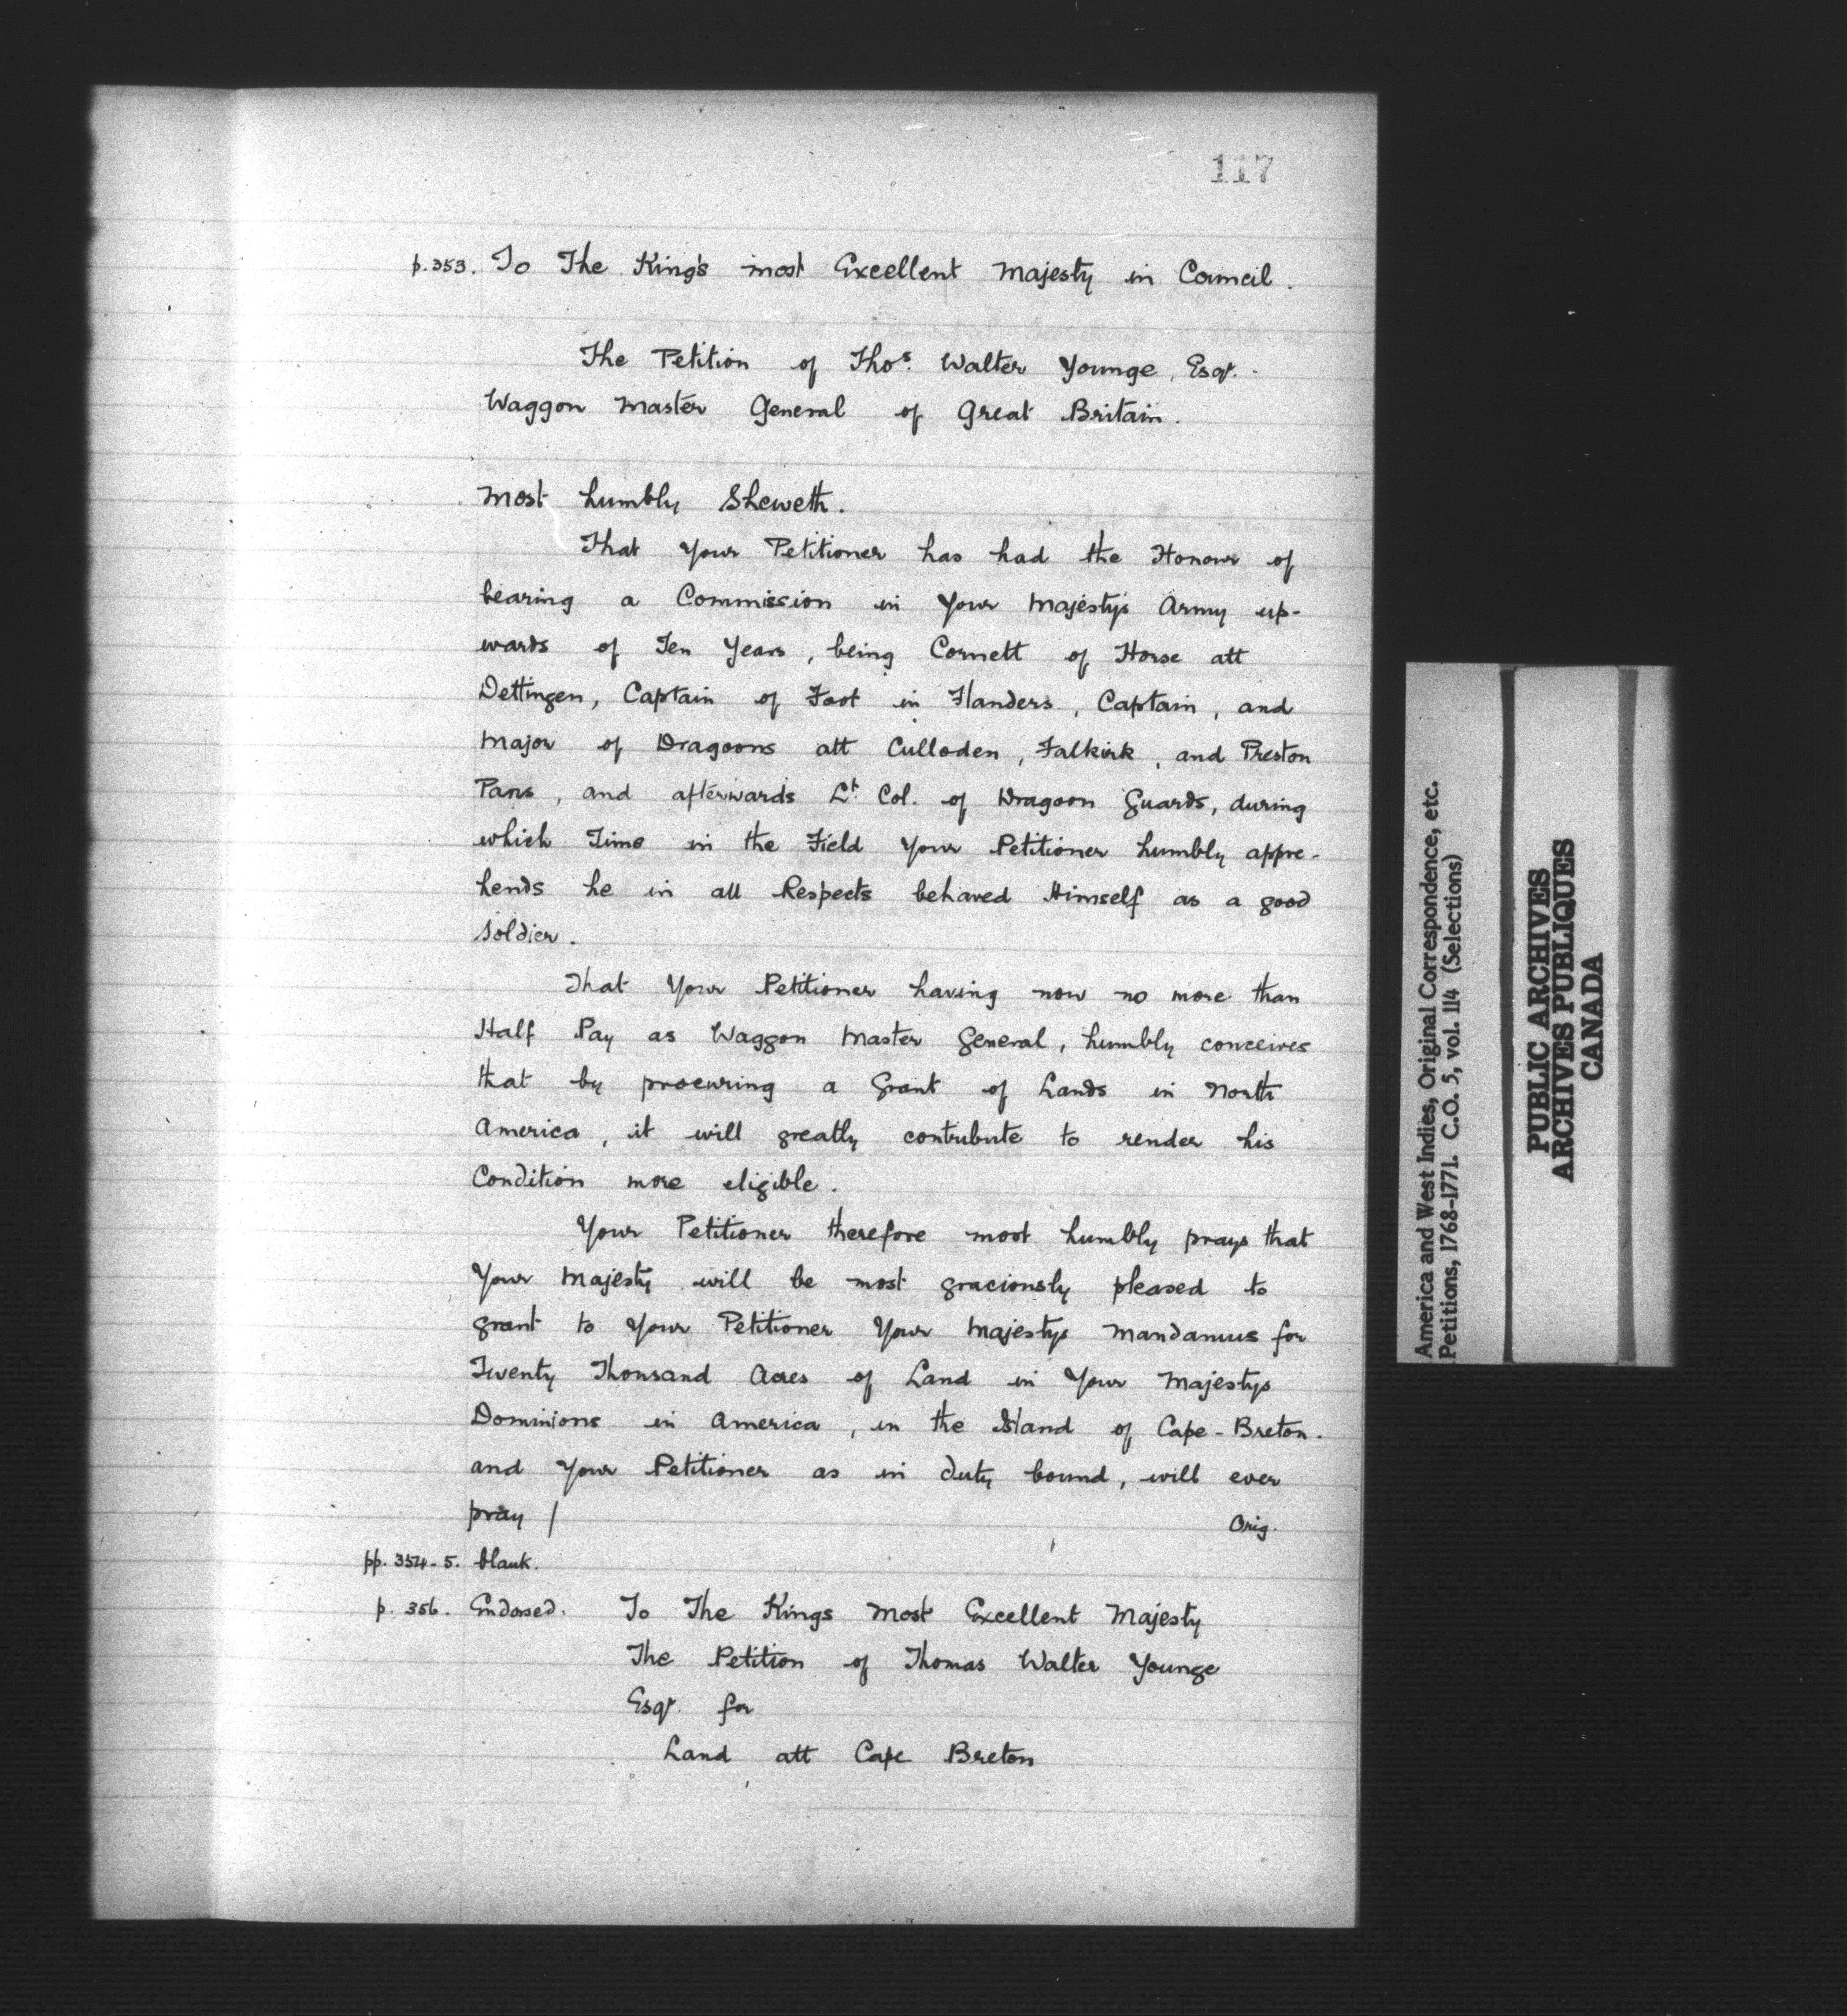 117
p.353. To The King's most Excellent Majesty in Council.
The Petition of Thos. Walter Younge, Esqr.
Waggon Master General of Great Britain.
Most humbly Sheweth.
That Your Petitioner has had the Honour of
bearing a Commission in Your Majesty's Army up-
wards of Ten Years, being Cornett of Horse att
Dettingen, Captain of Foot in Flanders, Captain, and
Major of Dragoons att Culloden, Falkirk, and Preston
Pans, and afterwards Lt. Col. of Dragoon Guards, during
which Time in the Field Your Petitioner humbly appre-
hends he in all Respects behaved Himself as a good
Soldier.
That Your Petitioner having now no more than
Half Pay as Waggon Master General, humbly conceives
that by procuring a Grant of Lands in North
America, it will greatly contribute to render his
Condition more eligible.
Your Petitioner therefore most humbly prays that
Your Majesty will be most graciously pleased to
grant to Your Petitioner Your Majestys Mandamus for
Twenty Thousand Acres of Land in Your Majestys
Dominions in America, in the Island of Cape-Breton.
and Your Petitioner as in duty bound, will ever
pray /
Orig.
pp. 354-5. blank.
p. 356. Endorsed. To The Kings Most Excellent Majesty
The Petition of Thomas Walter Younge
Esqr. for
Land att Cape Breton
America and West Indies, Original Correspondence, etc.
Petitions, 1768-1771. C.O. 5, vol. 114 (Selections)
PUBLIC ARCHIVES
ARCHIVES PUBLIQUES
CANADA